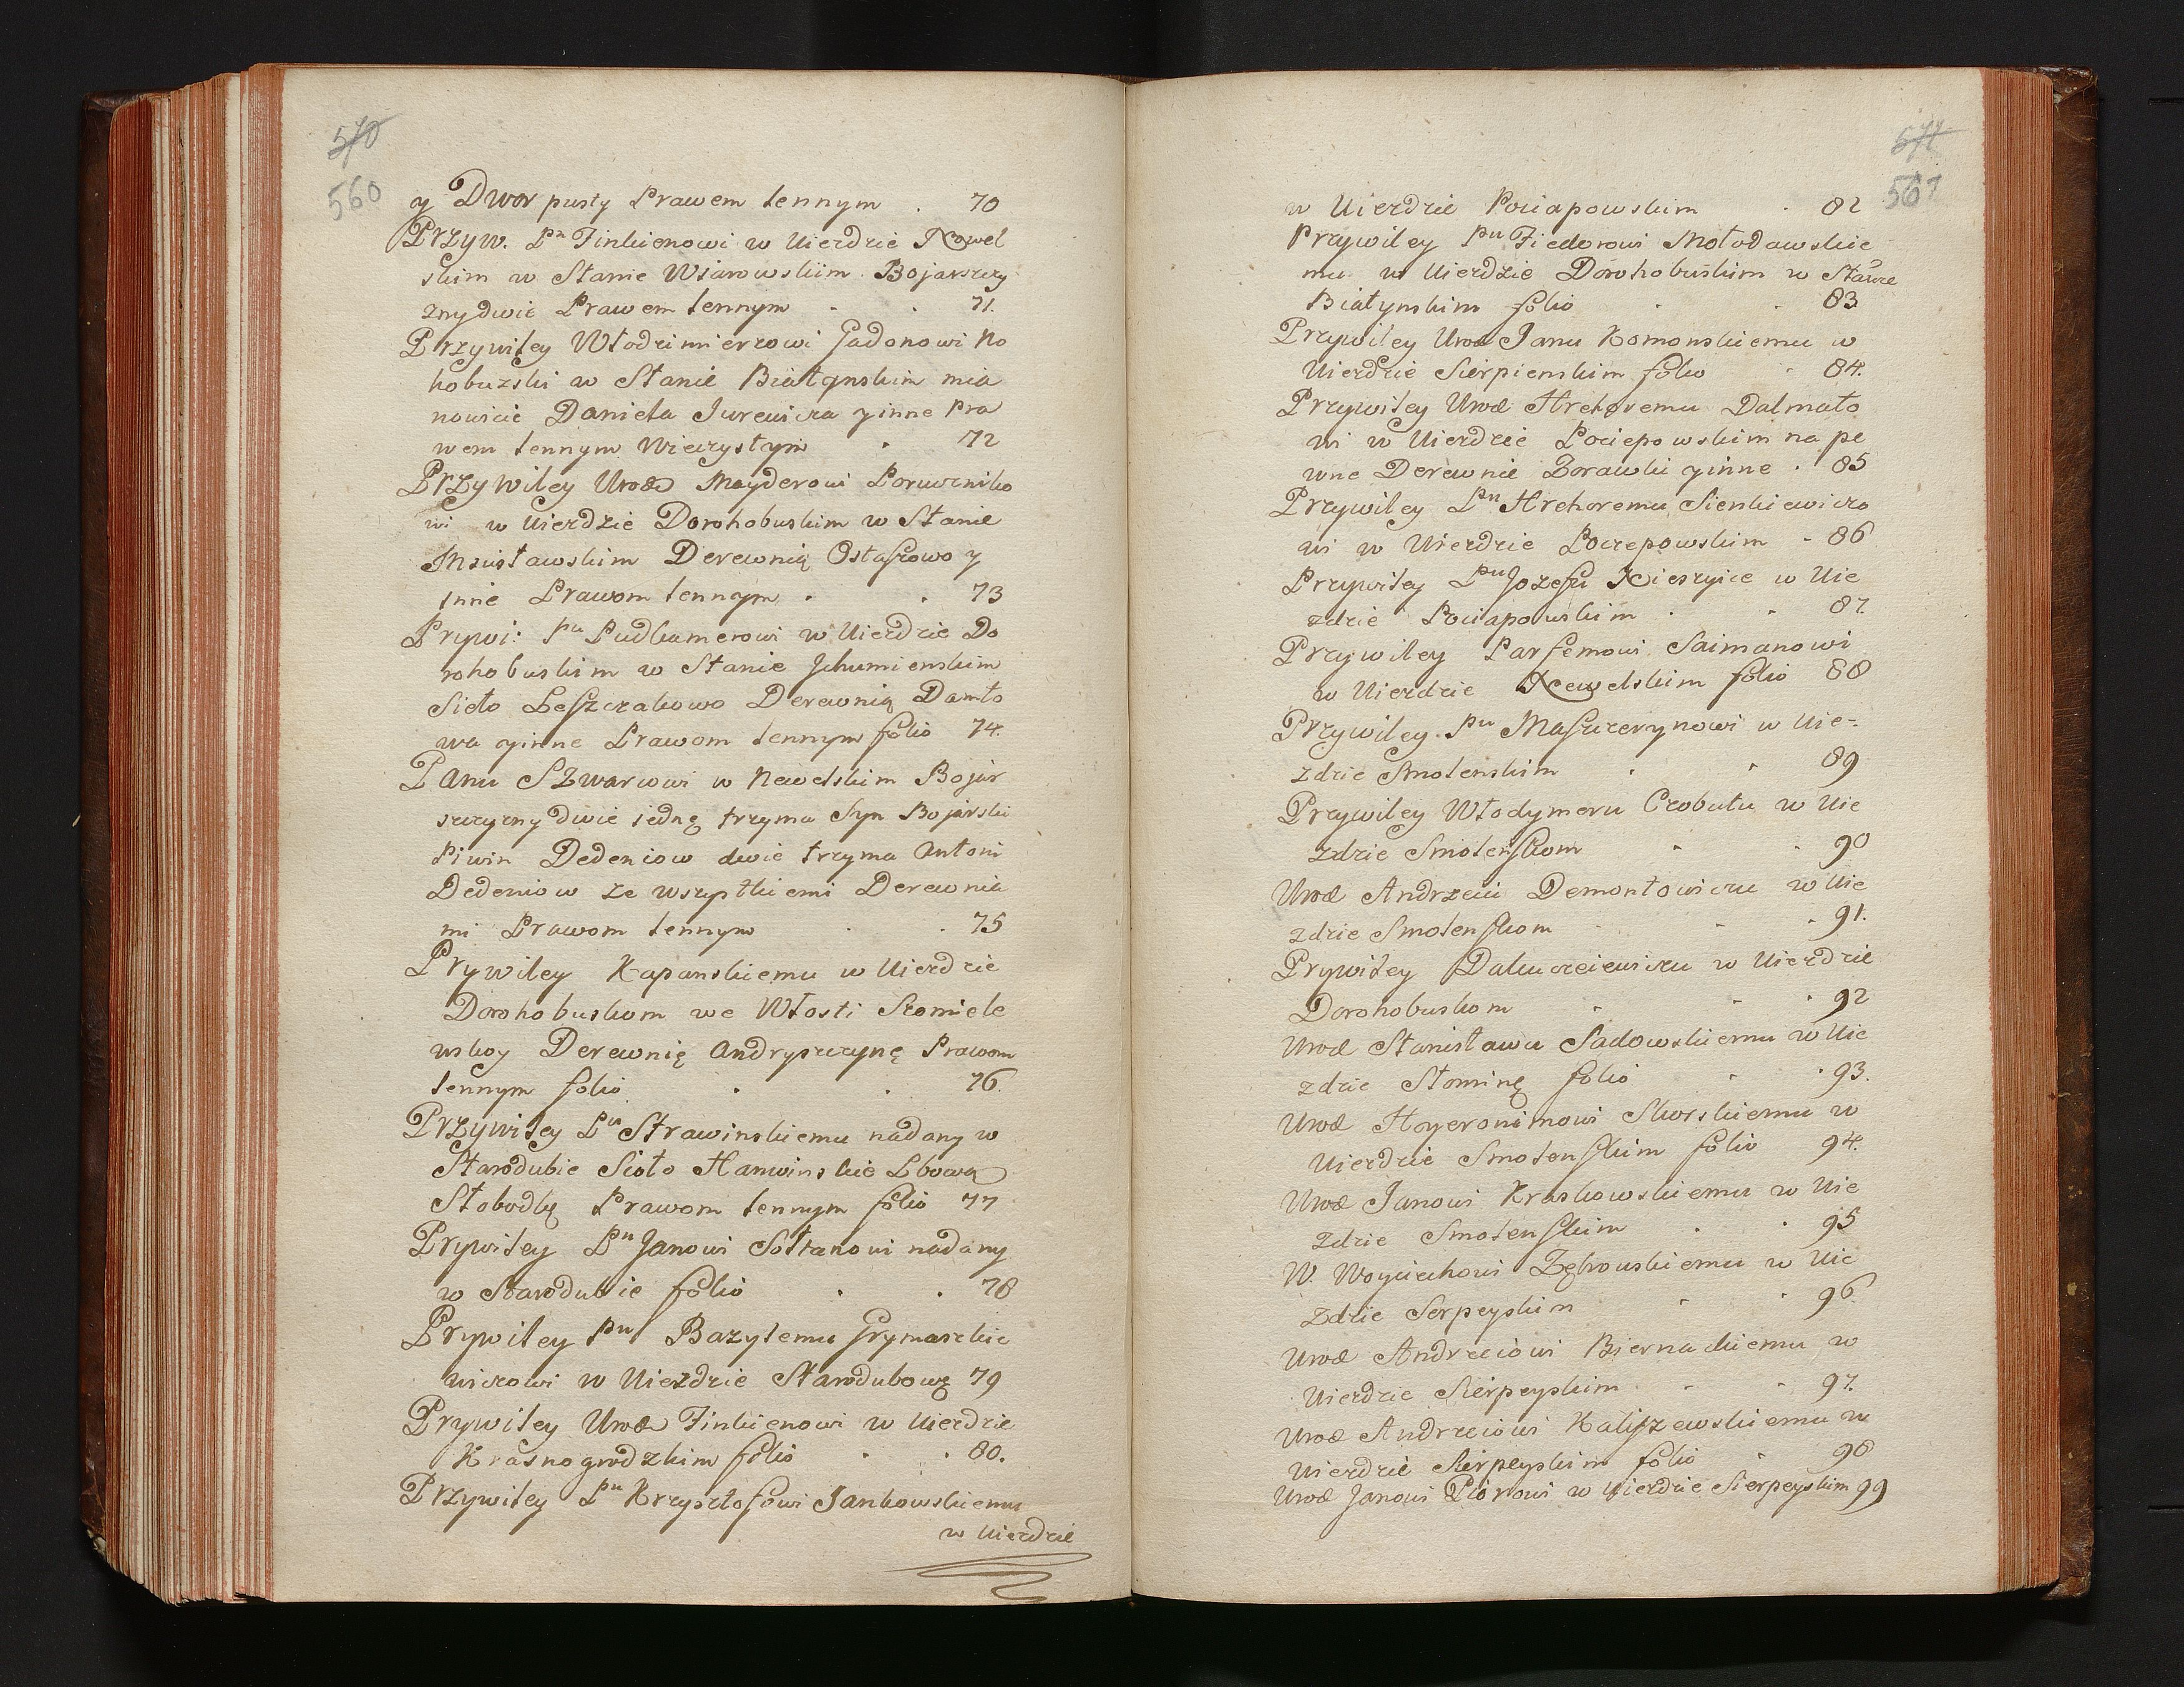 570
560
y Dwor pusty Prawem lennym . 70
Przyw. Pn Finkienowi w Uiezdzie Newel
skim w Stanie Wiarowskim Bojarszczy
zny dwie Prawem lennym . . 71.
Przywiley Włodzimierzowi Gadonowi No
hobuzski w Stanie Białynskim mia
nowicie Danieła Jurewicza y inne Pra
wem lennym Wieczystym . 72
Przywiley Urod Mayderowi Poruczniko
wi w Uiezdzie Dorohobuskim w Stanie
Mscisławskim Derewnią Ostaszowo y
inne Prawom lennym . . 73
Prywi: Pu Pudkamerowi w Uiezdzie Do
rohobuskim w Stanie Jhumienskim
Sieło Leszczakowo Derewnią Damło
wa y inne Prawom lennym folio 74.
Panu Szwarcowi w Newelskim Bojar
szczyzny dwie iedną trzyma Syn Bojarski
Piwin Dedeniow dwie trzyma Antoni
Dedeniow ze wszystkiemi Derewnia
mi Prawom lennym . . 75
Prywiley Kapanskiemu w Uiezdzie
Dorohobuskom we Włosti Słomiele
wskoy Derewnię Andryszczynę Prawom
lennym folio . . 76.
Przywiley Pu Strawinskiemu nadany w
Starodubie Sioło Harwinskie Lbową
Słobodkę Prawom lennym folio 77
Prywiley Pn Janowi Sołtanowi nadany
w Starodubie folio . . 78
Prywiley Pu Bazylemu Grymaszkie
wiczowi w Uiezdzie Starodubowę 79
Prywiley Urod Finkienowi w Uiezdzie
Krasnogrodzkim folio . . 80.
Przywiley Pu Krzysztofowi Jankowskiemu
w Uiezdzie
571
561
w Uiezdzie Pociapowskim . 82
Przywiley Pu Fiedorowi Mołodawskie
mu w Uiezdzie Dorohobuskim w Stawie
Białynskim folio . . 83
Przywiley Urod Janu Komonskiemu w
Uiezdzie Sierpienskim folio . 84.
Przywiley Urod Hrehoremu Dalmato
wi w Uiezdzie Pociepowskim na pe
wne Derewnie Borawki y inne . 85
Przywiley Pn Hrehoremu Sienkiewiczo
wi w Uiezdzie Poczepowskim . 86
Przywiley Pu Jozefu Kieszyice w Uie
zdzie Pociapowskim . . 87.
Przywiley Parfemowi Saimanowi
w Uiezdzie Newelskim folio 88
Przywiley Pu Maszczerynowi w Uie-
zdzie Smolenskim . . 89
Przywiley Włodymeru Czobutu w Uie
zdzie Smolenskom . . 90
Urod Andrzeiu Demontowiczu w Uie
zdzie Smolenskom . . 91.
Prywiley Dakuczeiewiczu w Uiezdzie
Dorohobuskom . . . 92
Urod Stanisławu Sadowskiemu w Uie
zdzie Słominę folio . . 93.
Urod Hoyeronimowi Skorskiemu w
Uiezdzie Smolenskim folio 94.
Urod Janowi Kraskowskiemu w Uie
zdzie Smolenskim . . 95
W. Woyciechowi Zębrowskiemu w Uie
zdzie Serpeyskim . . 96
Urod Andrzeiowi Biernackiemu w
Uiezdzie Sierpeyskim . . 97.
Urod Andrzeiowi Kaliszewskiemu w
Uiezdzie Sierpeyskim folio . 98
Urod Janowi Piorowi w Uiezdzie Sierpeyskim 99